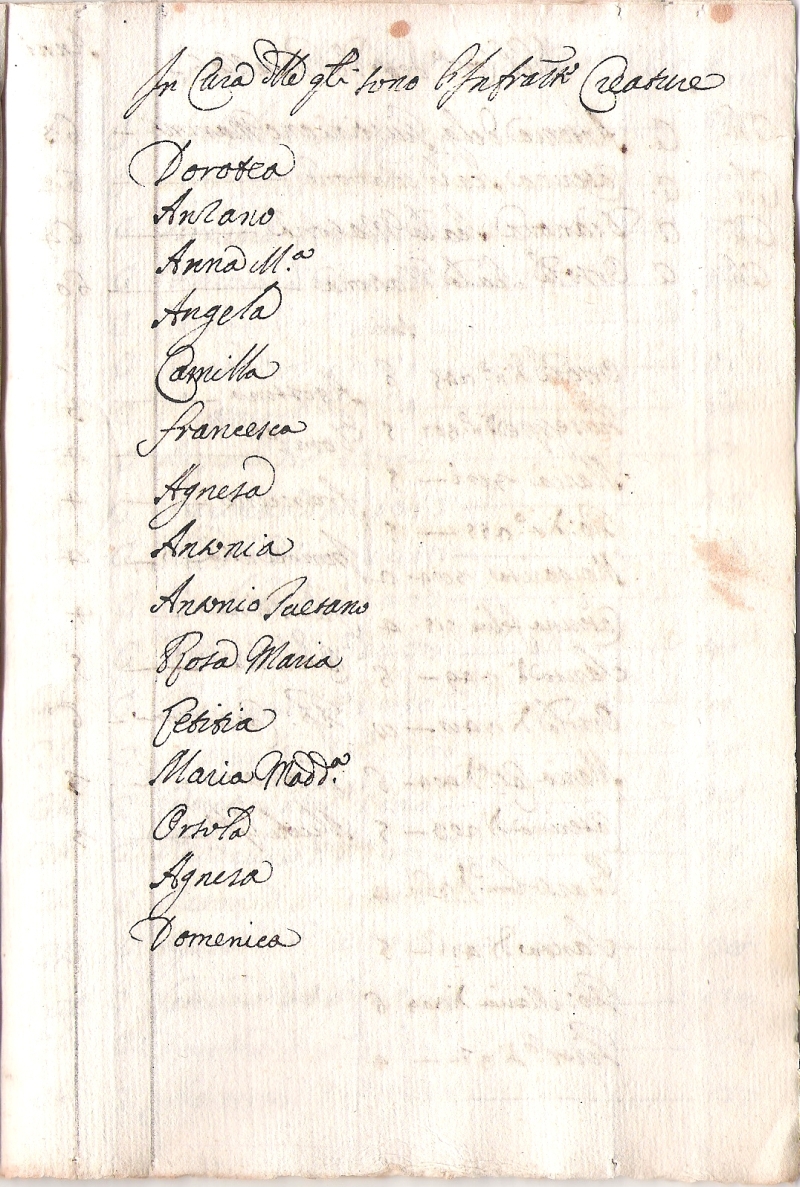 In Cura delle qli sono l'Infratte Creature
Dorotea
Anzano
Anna M.a
Angela
Camilla
francesca
Agnesa
Antonia
Antonio Gaetano
Rosa Maria
Letitia
Maria Madd.a
Orsola
Agnesa
Domenica